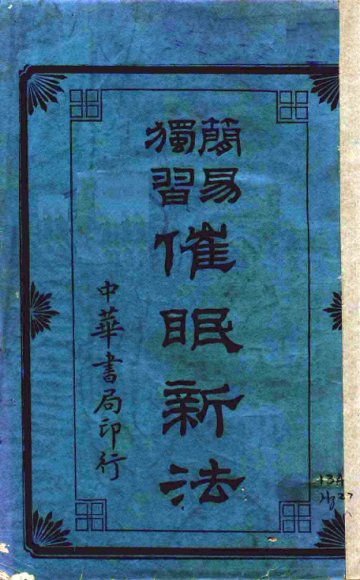 簡易
獨習
催眠新法
中華書局印行